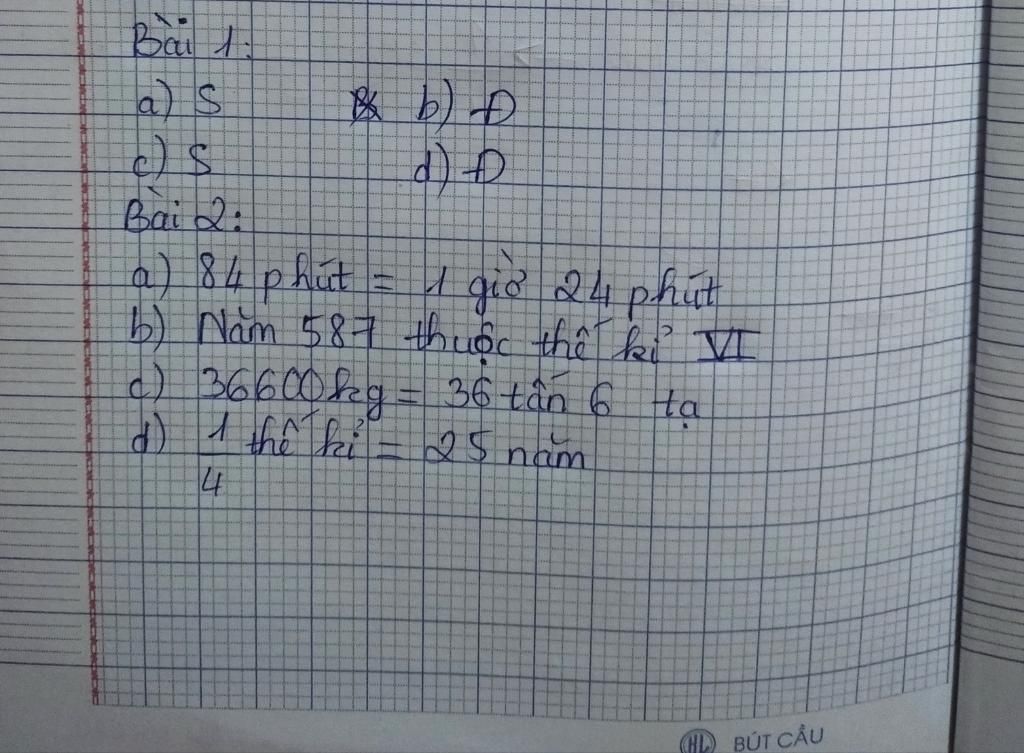 Bài 1:
a) S b) Đ
c) S d) Đ
Bài 2:
a) 84 phút = 1 giờ 24 phút
b) Năm 587 thuộc thế kỉ VI
c) 36600kg = 36 tấn 6 tạ
d) 1/4 thế kỉ = 25 năm
HL BÚT CẦU